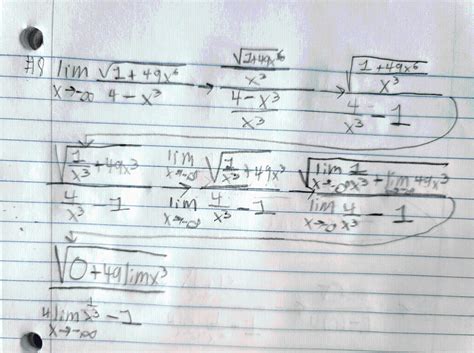 #8 lim x→-∞ √(1+49x⁶) / (4-x³) → (√(1+49x⁶) / x³) / ((4-x³) / x³) → √((1+49x⁶) / x³) / (4/x³ - 1)
√(1/x³ + 49x³) / (4/x³ - 1) → lim x→-∞ √(1/x³ + 49x³) / lim x→-∞ 4/x³ - 1 → √(lim x→-∞ 1/x³ + lim 49x³) / lim x→-∞ 4/x³ - 1
√(0+49 lim x³) / 4 lim x→-∞ 1/x³ - 1